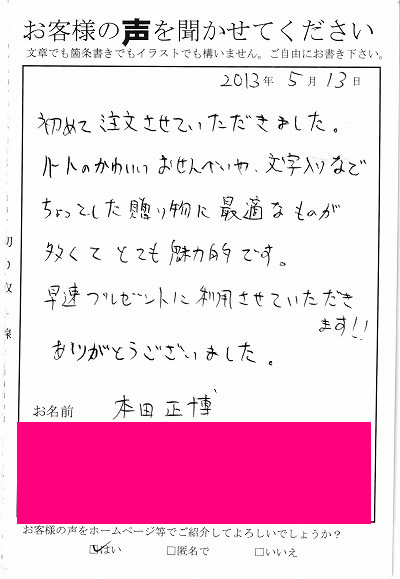 お客様の声を聞かせてください
文章でも箇条書きでもイラストでも構いません。ご自由にお書き下さい。
2013年 5月 13日
初めて注文させていただきました。
ハートのかわいいおせんべいや、文字入りなど
ちょっとした贈り物に最適なものが
多くてとても魅力的です。
早速プレゼントに利用させていただき
ます!!
ありがとうございました。
お名前 本田正博
お客様の声をホームページ等でご紹介してよろしいでしょうか?
☑はい □匿名で □いいえ